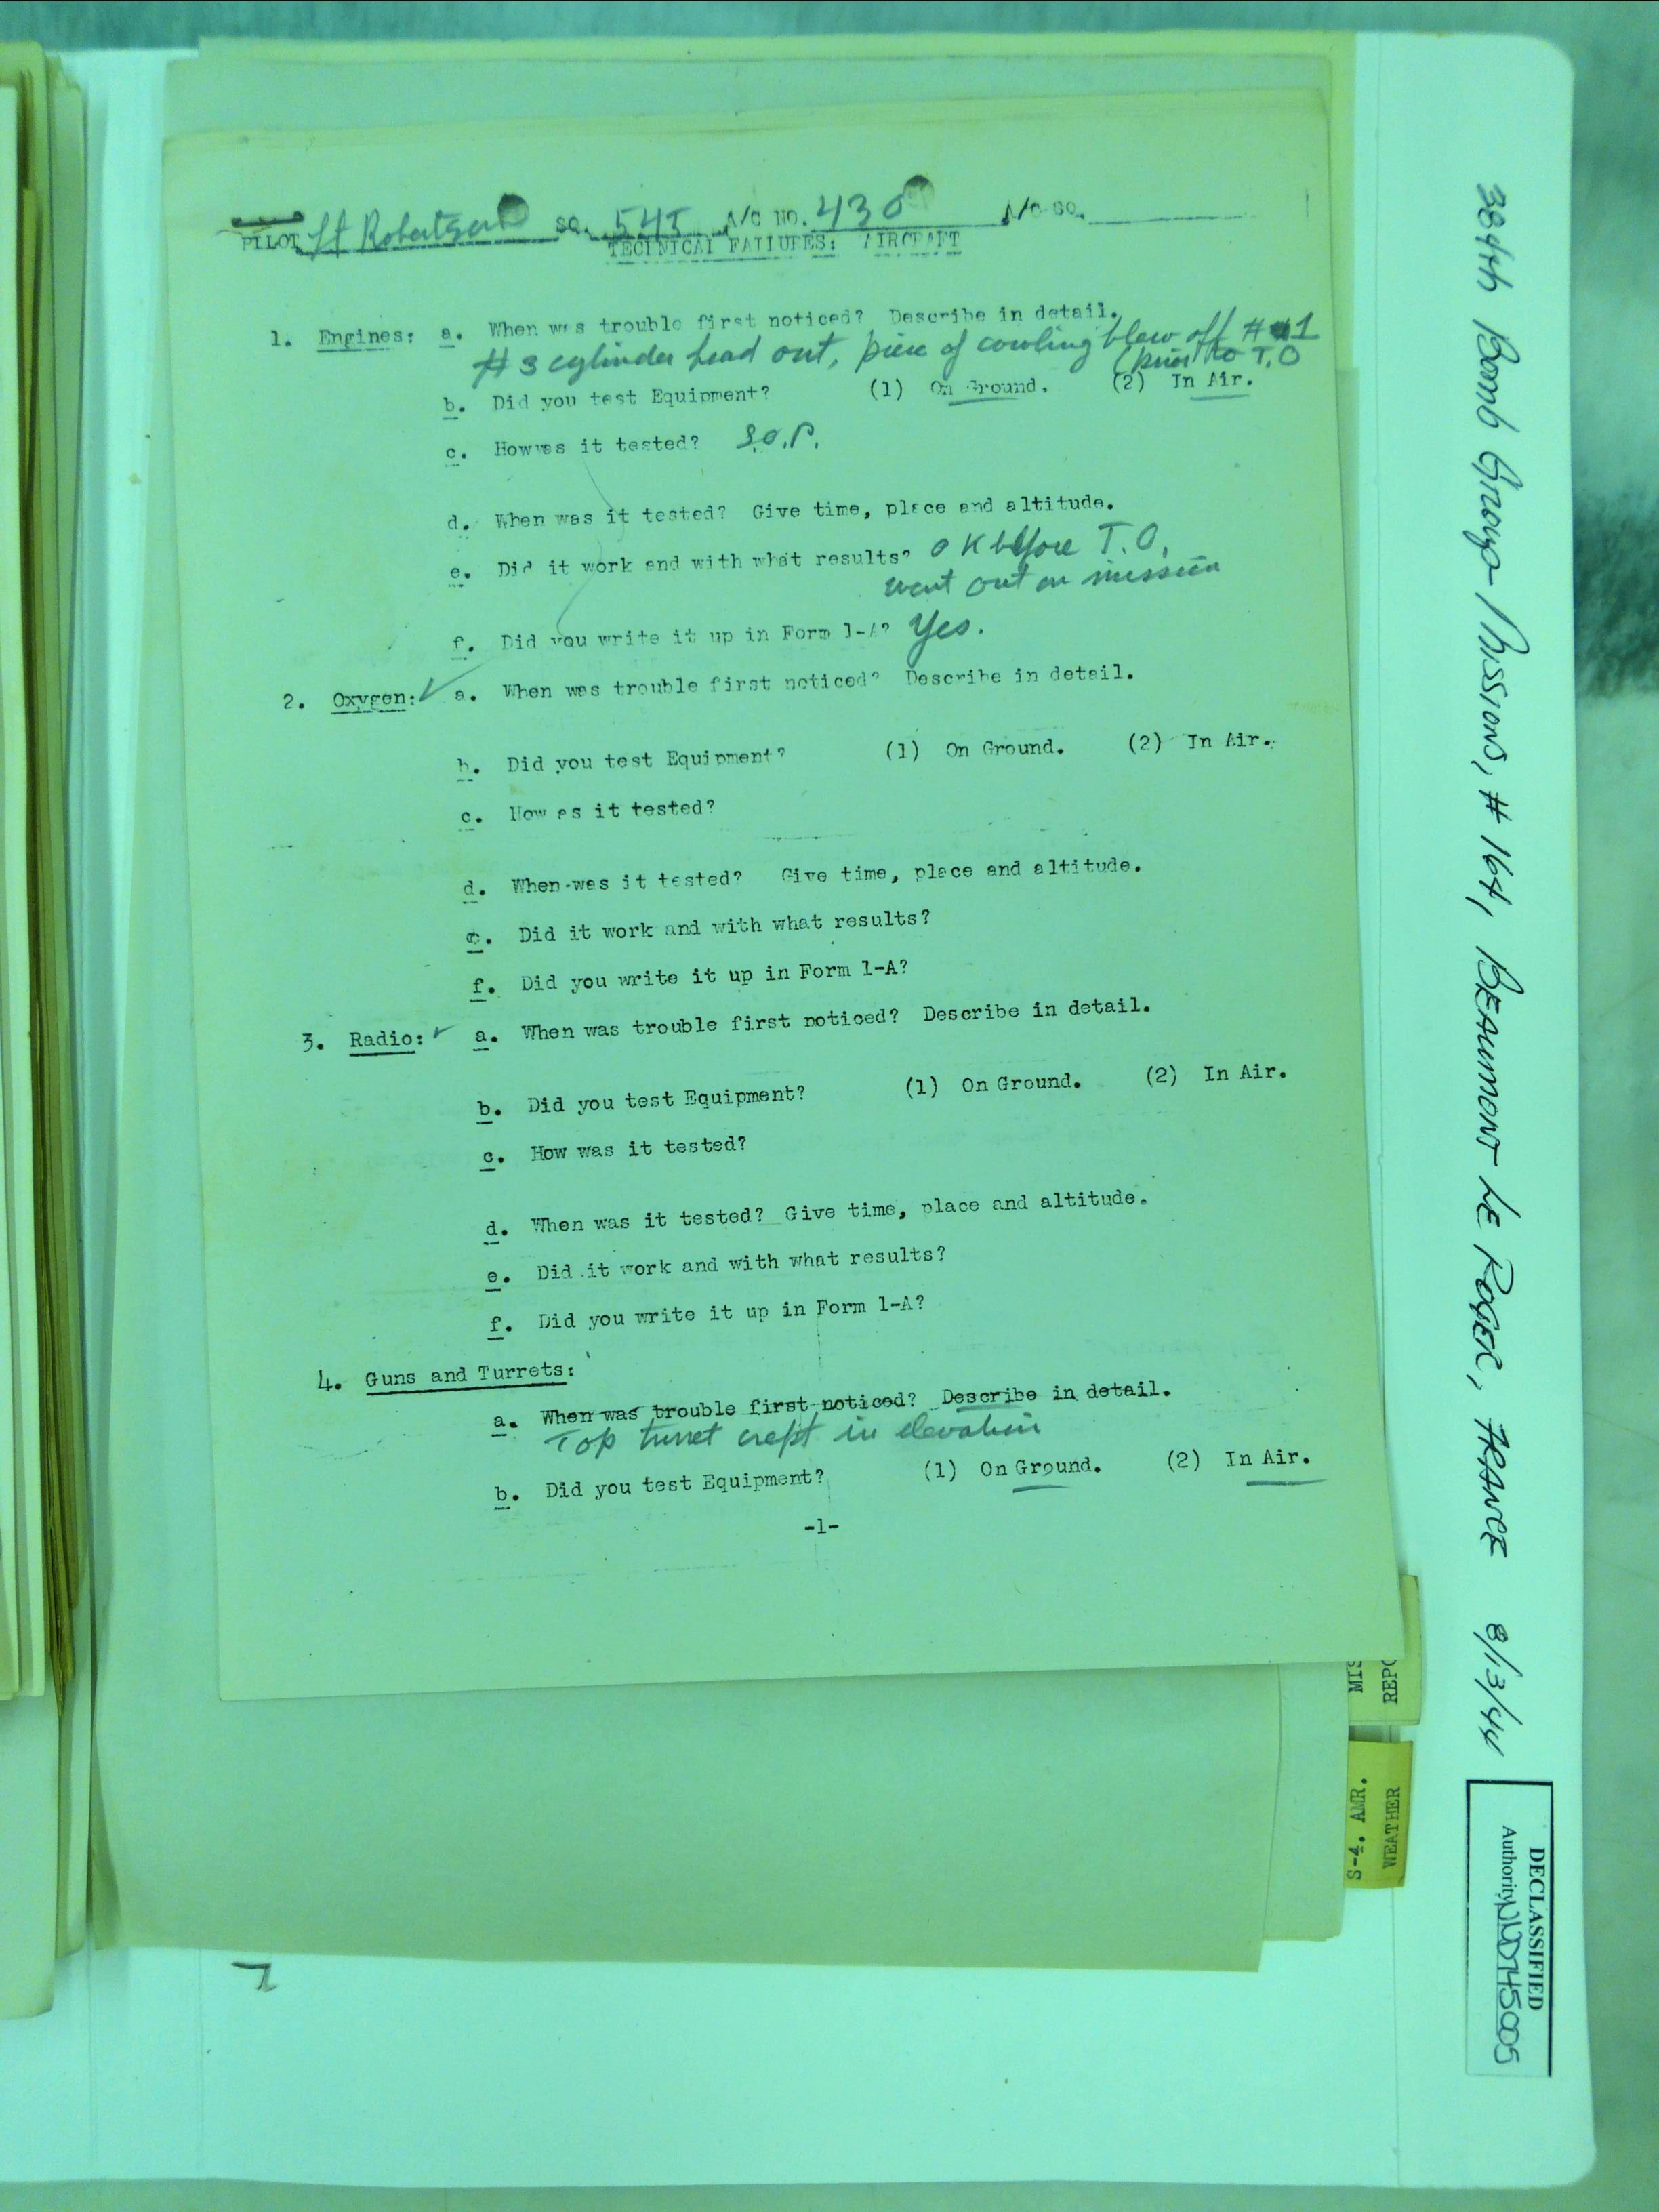 PILOT Lt Robertson SQ. 545 A/C NO. 430 A/C SQ.
TECHNICAL FAILURES: AIRCRAFT
1. Engines: a. When was trouble first noticed? Describe in detail.
#3 cylinder head out, piece of cowling blew off # 1
(prior to T.O
b. Did you test Equipment? (1) On Ground. (2) In Air.
c. How was it tested? S.O.P.
d. When was it tested? Give time, place and altitude.
e. Did it work and with what results? OK before T.O.
went out on mission
f. Did you write it up in Form 1-A? Yes.
2. Oxygen: ✓ a. When was trouble first noticed? Describe in detail.
b. Did you test Equipment? (1) On Ground. (2) In Air.
c. How as it tested?
d. When was it tested? Give time, place and altitude.
e. Did it work and with what results?
f. Did you write it up in Form 1-A?
3. Radio: ✓ a. When was trouble first noticed? Describe in detail.
b. Did you test Equipment? (1) On Ground. (2) In Air.
c. How was it tested?
d. When was it tested? Give time, place and altitude.
e. Did it work and with what results?
f. Did you write it up in Form 1-A?
4. Guns and Turrets:
a. When was trouble first noticed? Describe in detail.
Top turret crept in elevation
b. Did you test Equipment? (1) On Ground. (2) In Air.
-1-
MIS
REPO
S-4. AMR.
WEATHER
384th Bomb Group Missions, # 164, BEAUMONT LE ROGER, FRANCE 8/13/44
DECLASSIFIED
Authority NND745005
7